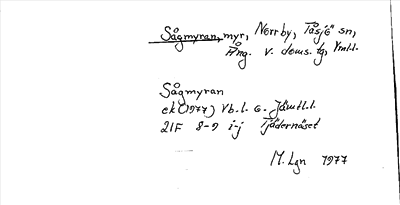 Sågmyran, myr, Norrby, Tåsjö sn,
Ång. v. doms. tg, Vml.l.
Sågmyran
ek (1977) Vb.l. o. Jämtl.l.
21F 8-9 i-j Tjädernäset
M. Lgn 1977